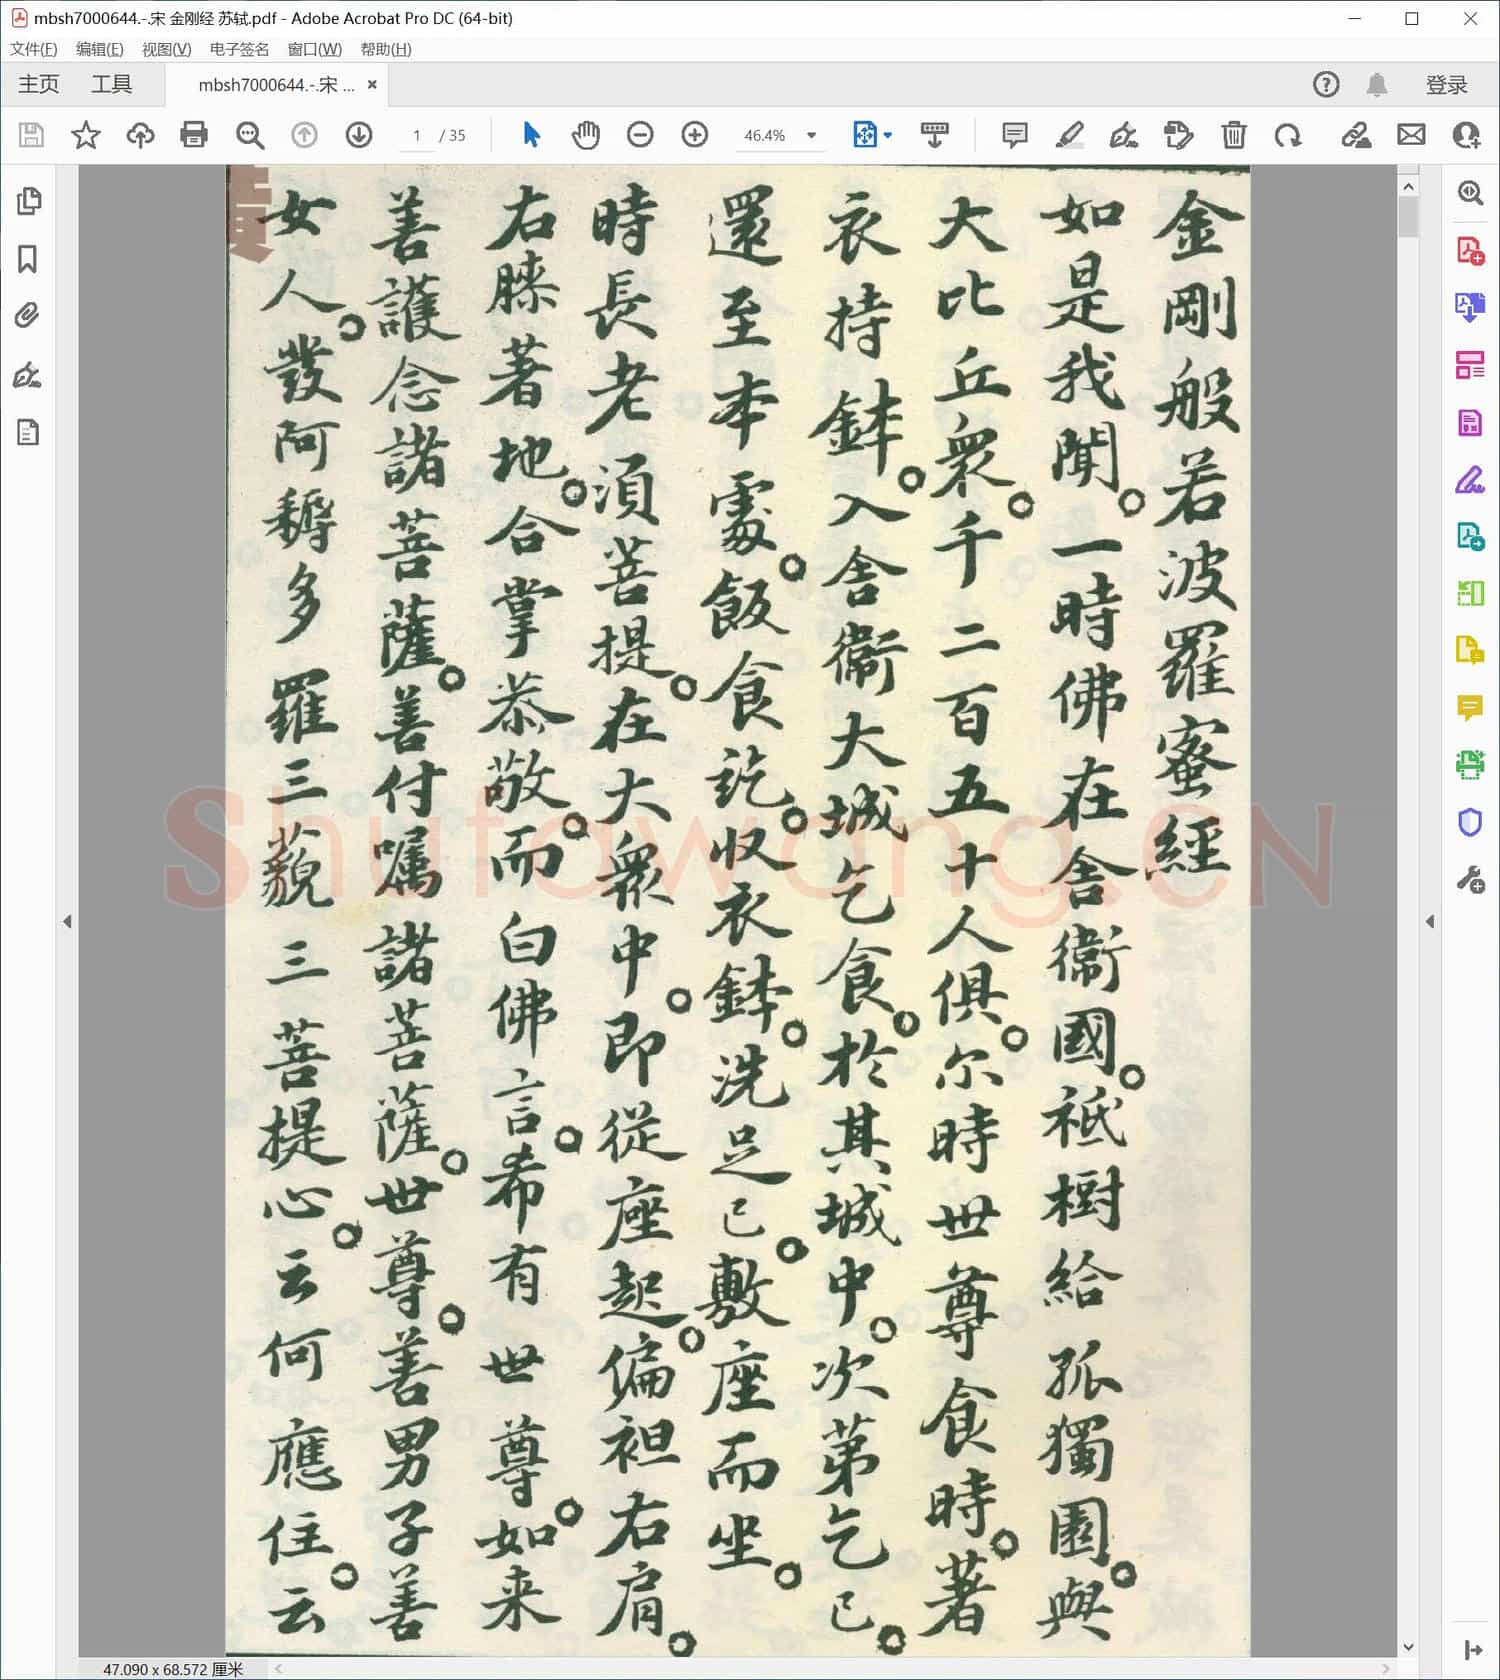 mbsh7000644.-.宋 金刚经 苏轼.pdf - Adobe Acrobat Pro DC (64-bit)
文件(F) 编辑(E) 视图(V) 电子签名 窗口(W) 帮助(H)
主页 工具 mbsh7000644.-.宋 ... × 登录
1 / 35 46.4%
金剛般若波羅蜜經
如是我聞。一時佛在舍衞國。祗樹給孤獨園。與
大比丘衆。千二百五十人俱。尔時世尊食時。著
衣持鉢。入舍衞大城乞食。於其城中。次苐乞已。
還至本處。飯食訖。收衣鉢。洗足已。敷座而坐。
時長老須菩提。在大衆中。即從座起。偏袒右肩。
右膝著地。合掌恭敬。而白佛言。希有世尊。如来
善護念諸菩薩。善付嘱諸菩薩。世尊。善男子善
女人。發阿耨多羅三藐三菩提心。云何應住。云
Shufawang.CN
47.090 x 68.572 厘米